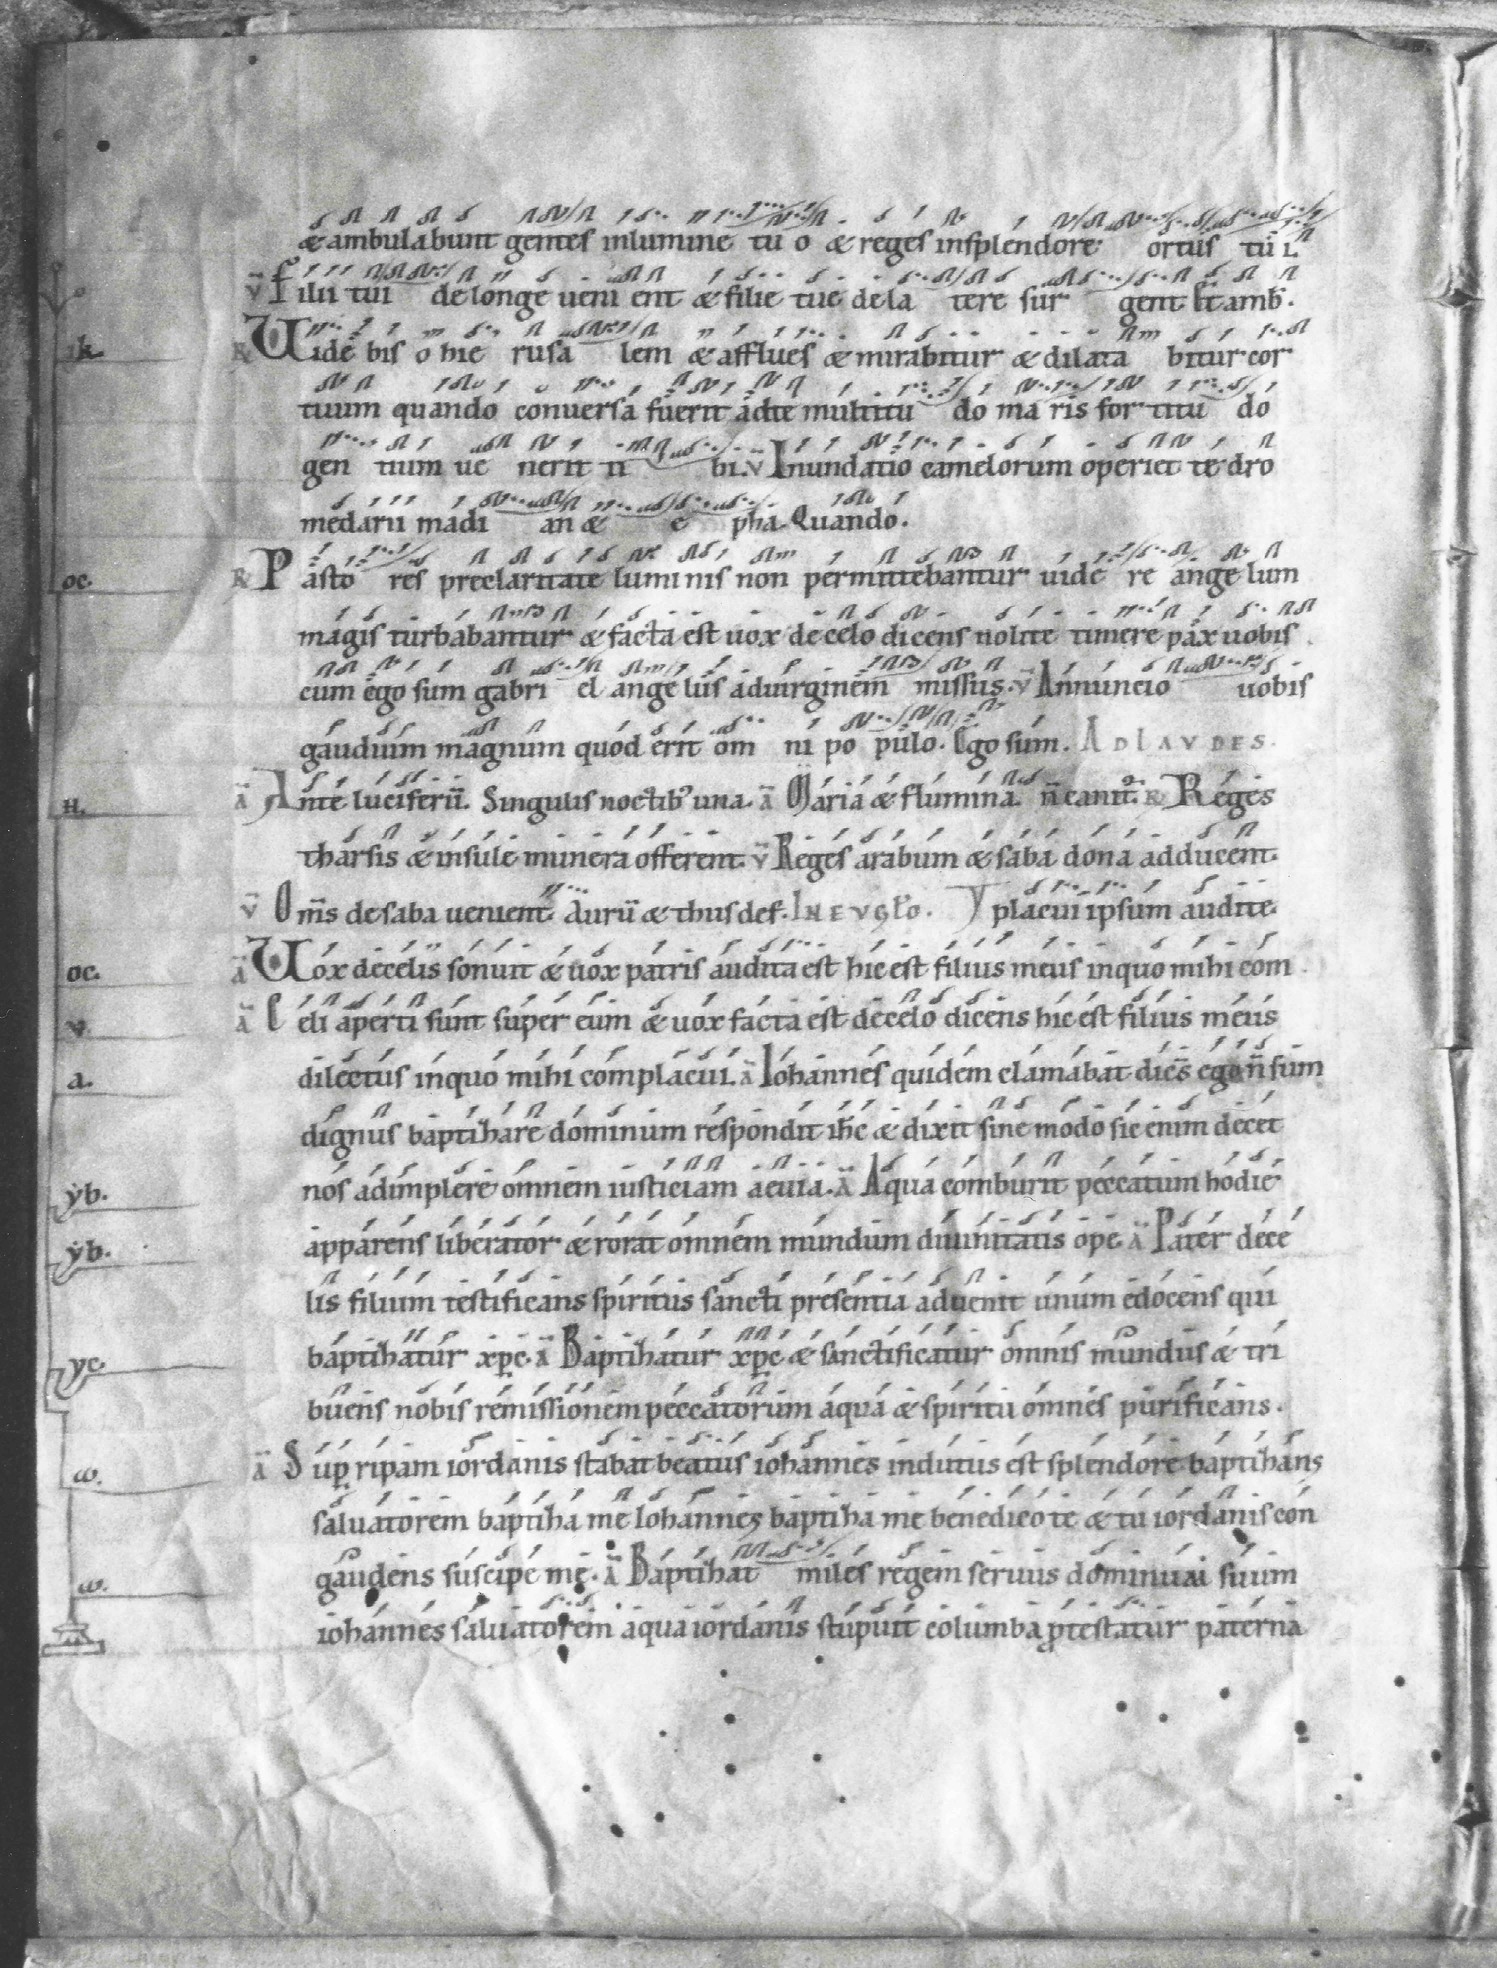 & ambulabunt gentes inlumine tu o & reges insplendore ortus tui.
v̄ Filii tui de longe veni ent & filie tue de la tere sur gent. Et amb̄.
ik. R̸ Vide bis o hie rusa lem & afflues & mirabitur & dilata bitur cor
tuum quando conversa fuerit adte multitu do ma ris for titu do
gen tium ve nerit ti bi. v̄ Inundatio camelorum operiet te dro
medarii madi an & e pha. Quando.
oc. R̸ Pasto res pre claritate luminis non permittebantur uide re ange lum
magis turbabantur & facta est uox de celo dicens nolite timere pax uobis
cum ego sum gabri el ange lus aduirginem missus. v̄ Annuncio uobis
gaudium magnum quod erit om ni po pulo. Ego sum. AD LAVDES.
H. ā Ante luciferū. Singulis noctib' una. ā Maria & flumina. n̄ canit. R̸ Reges
tharsis & insule munera offerent. v̄ Reges arabum & saba dona adducent.
v̄ Om̄s de saba uenient. Aurū & thus def. IN EVGLO. Yplacui ipsum audite.
oc. ā Vox decelis sonuit & uox patris audita est hic est filius meus inquo mihi com
v. ā Celi aperti sunt super eum & uox facta est decelo dicens hic est filius meus
a. dilectus inquo mihi complacui. ā Iohannes quidem clamabat dicēs ego n̄ sum
dignus baptihare dominum respondit ih̄c & dixit sine modo sic enim decet
yb. nos adimplere omnem iusticiam aeuia. ā Aqua comburit peccatum hodie
yb. apparens liberator & rorat omnem mundum diuinitatis ope. ā Pater dece
lis filium testificans spiritus sancti presentia aduenit unum edocens qui
yc. baptihatur xp̄e. ā Baptihatur xp̄c & sanctificatur omnis mundus & tri
buens nobis remissionem peccatorum aqua & spiritu omnes purificans.
ω. ā Sup̱ ripam iordanis stabat beatus iohannes indutus est splendore baptihans
saluatorem baptiha me Iohannes baptiha me benedico te & tu iordanis con
ω. gaudens suscipe me. ā Baptihat miles regem seruus dominum suum
iohannes saluatorem aqua iordanis stupuit columba ꝓtestatur paterna